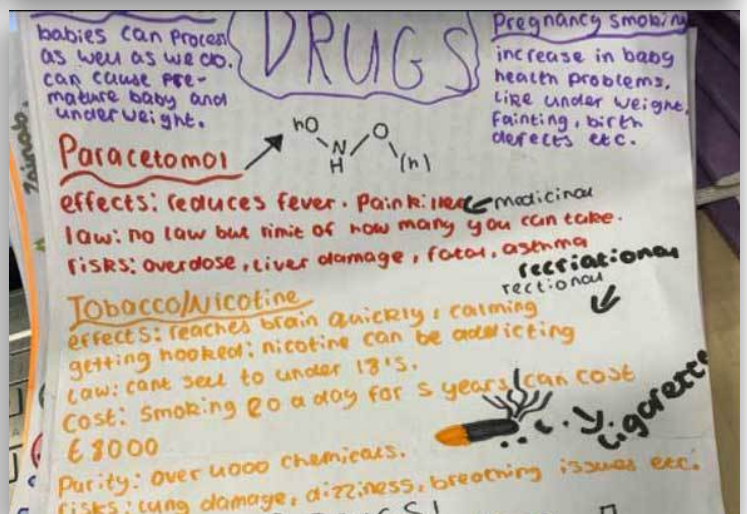 babies can process
as well as we do.
can cause pre-
mature baby and
underweight.
DRUGS
Pregnancy smoking
increase in baby
health problems,
like under weight,
fainting, birth
defects etc.
Paracetomol
hO
N
H
O
(h)
effects: reduces fever. Painkiller
medicinal
law: no law but limit of how many you can take.
risks: overdose, liver damage, fatal, asthma
recriational
rectional
Tobacco/Nicotine
effects: reaches brain quickly, calming
getting hooked: nicotine can be addicting
Law: cant sell to under 18's.
Cost: Smoking 20 a day for 5 years can cost
£8000
Cigarette
Purity: over 4000 chemicals.
risks: lung damage, dizziness, breathing issues etc.